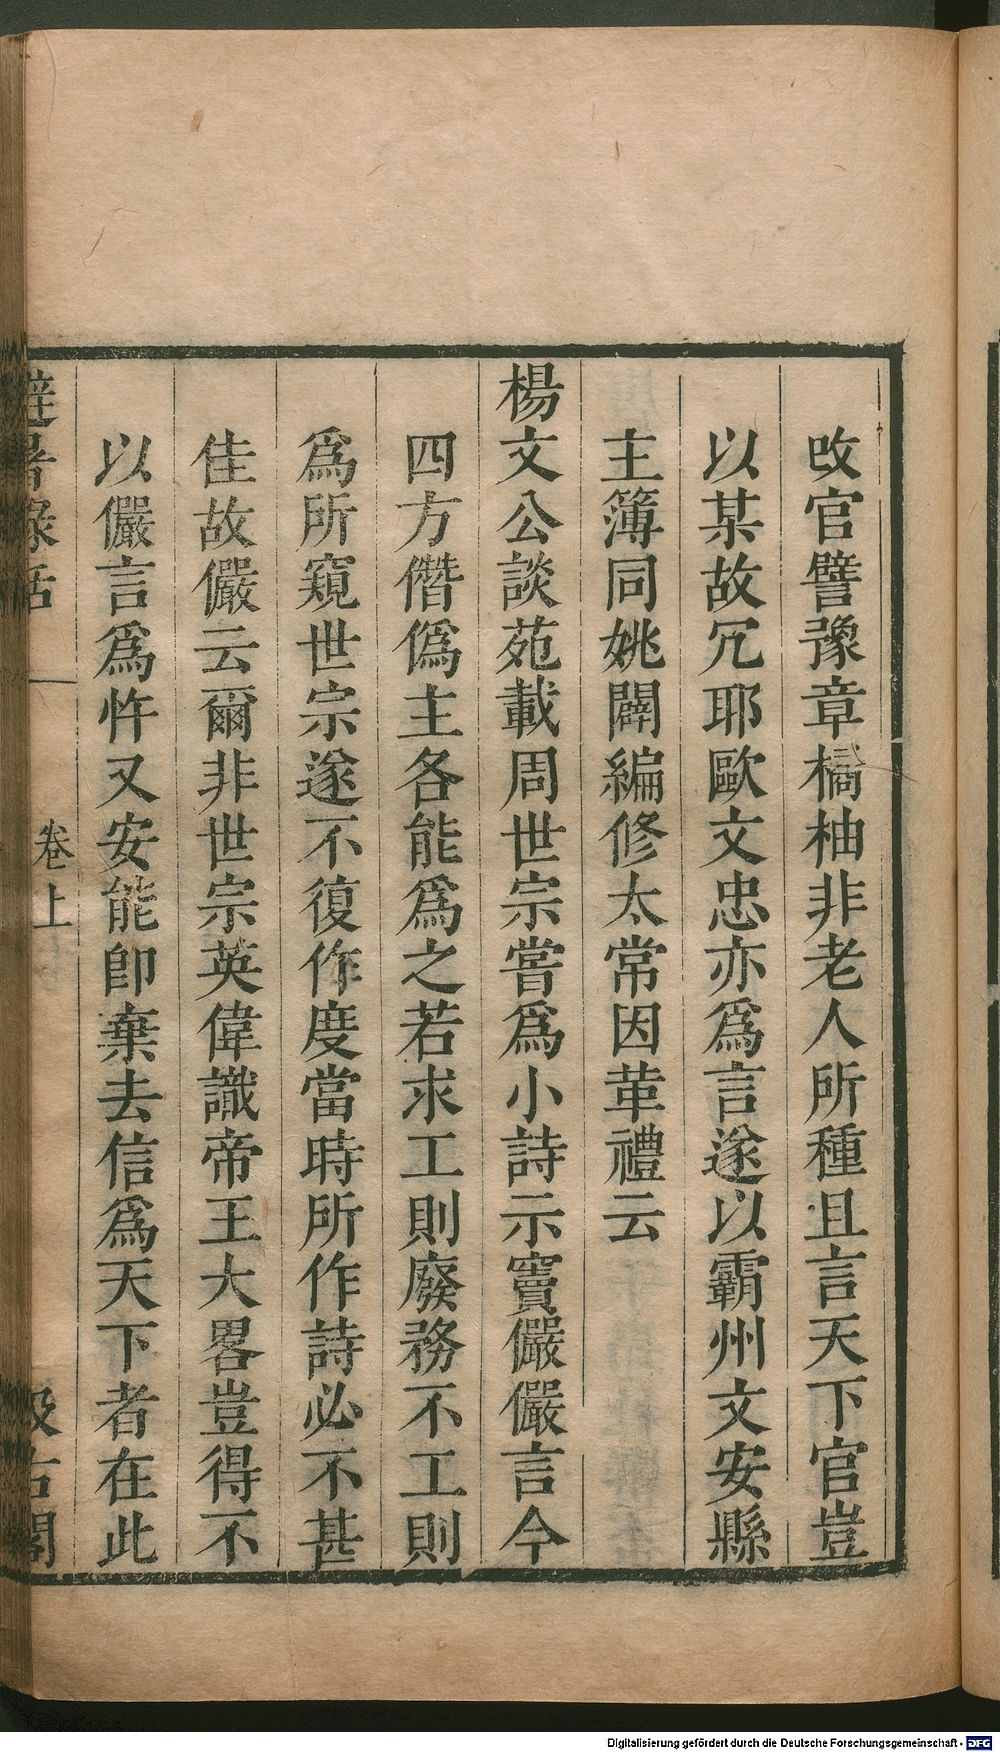 改官譬豫章橘柚非老人所種且言天下官豈
以某故冗耶歐文忠亦爲言遂以霸州文安縣
主簿同姚闢編修太常因革禮云
楊文公談苑載周世宗嘗爲小詩示竇儼儼言今
四方僭僞主各能爲之若求工則廢務不工則
爲所窺世宗遂不復作度當時所作詩必不甚
佳故儼云爾非世宗英偉識帝王大畧豈得不
以儼言爲忤又安能卽棄去信爲天下者在此
避暑錄話
卷上
汲古閣
Digitalisierung gefördert durch die Deutsche Forschungsgemeinschaft - DFG